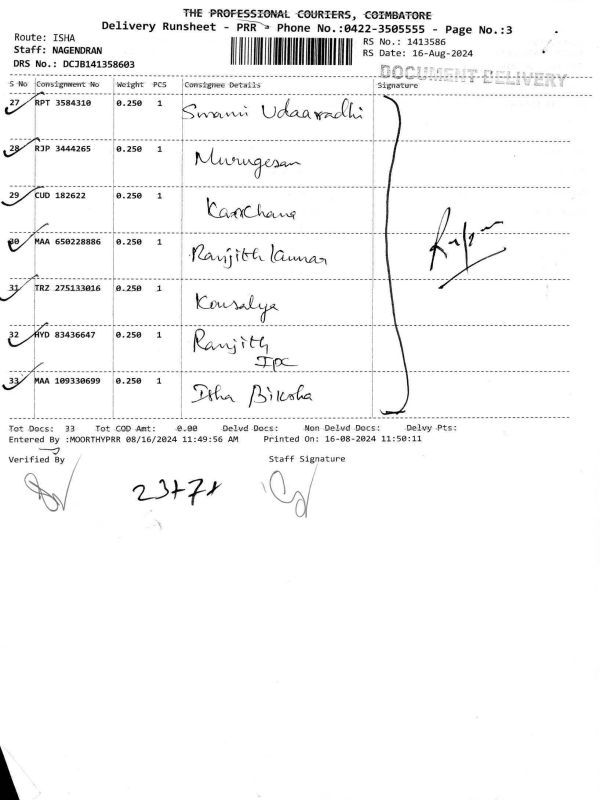 THE PROFESSIONAL COURIERS, COIMBATORE
Delivery Runsheet - PRR - Phone No.:0422-3505555 - Page No.:3
Route: ISHA
RS No.: 1413586
Staff: NAGENDRAN
RS Date: 16-Aug-2024
DRS No.: DCJB141358603
DOCUMENT DELIVERY
S No Consignment No Weight PCS Consignee Details Signature
27 RPT 3584310 0.250 1 Swami
28 RJP 3444265 0.250 1 Murugesan
29 CUD 182622 0.250 1 Kanchana
30 MAA 650228886 0.250 1 Ranjith Kumar
31 TRZ 275133016 0.250 1 Kousalya
32 HYD 83436647 0.250 1 Ranjith
IPC
33 MAA 109330699 0.250 1 Isha Biksha
Tot Docs: 33 Tot COD Amt: 0.00 Delvd Docs: Non Delvd Docs: Delvy Pts:
Entered By :MOORTHYPRR 08/16/2024 11:49:56 AM Printed On: 16-08-2024 11:50:11
Verified By Staff Signature